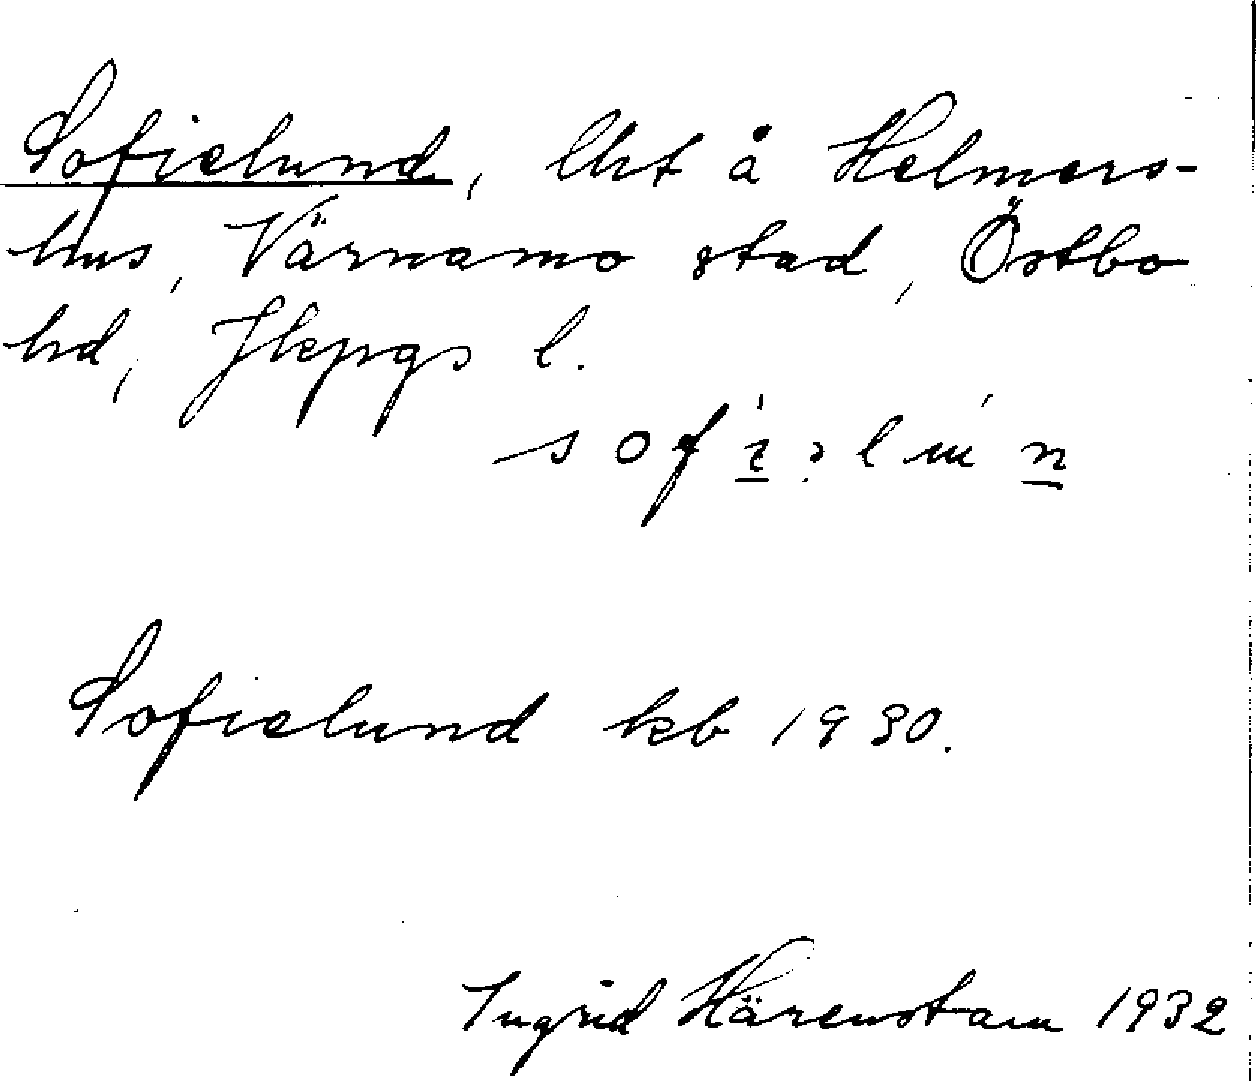 Sofielund, lht å Helmers-
hus, Värnamo stad, Östbo
hd, Jkpgs l.
Sofielund kb 1930.
Ingrid Härenstam 1932